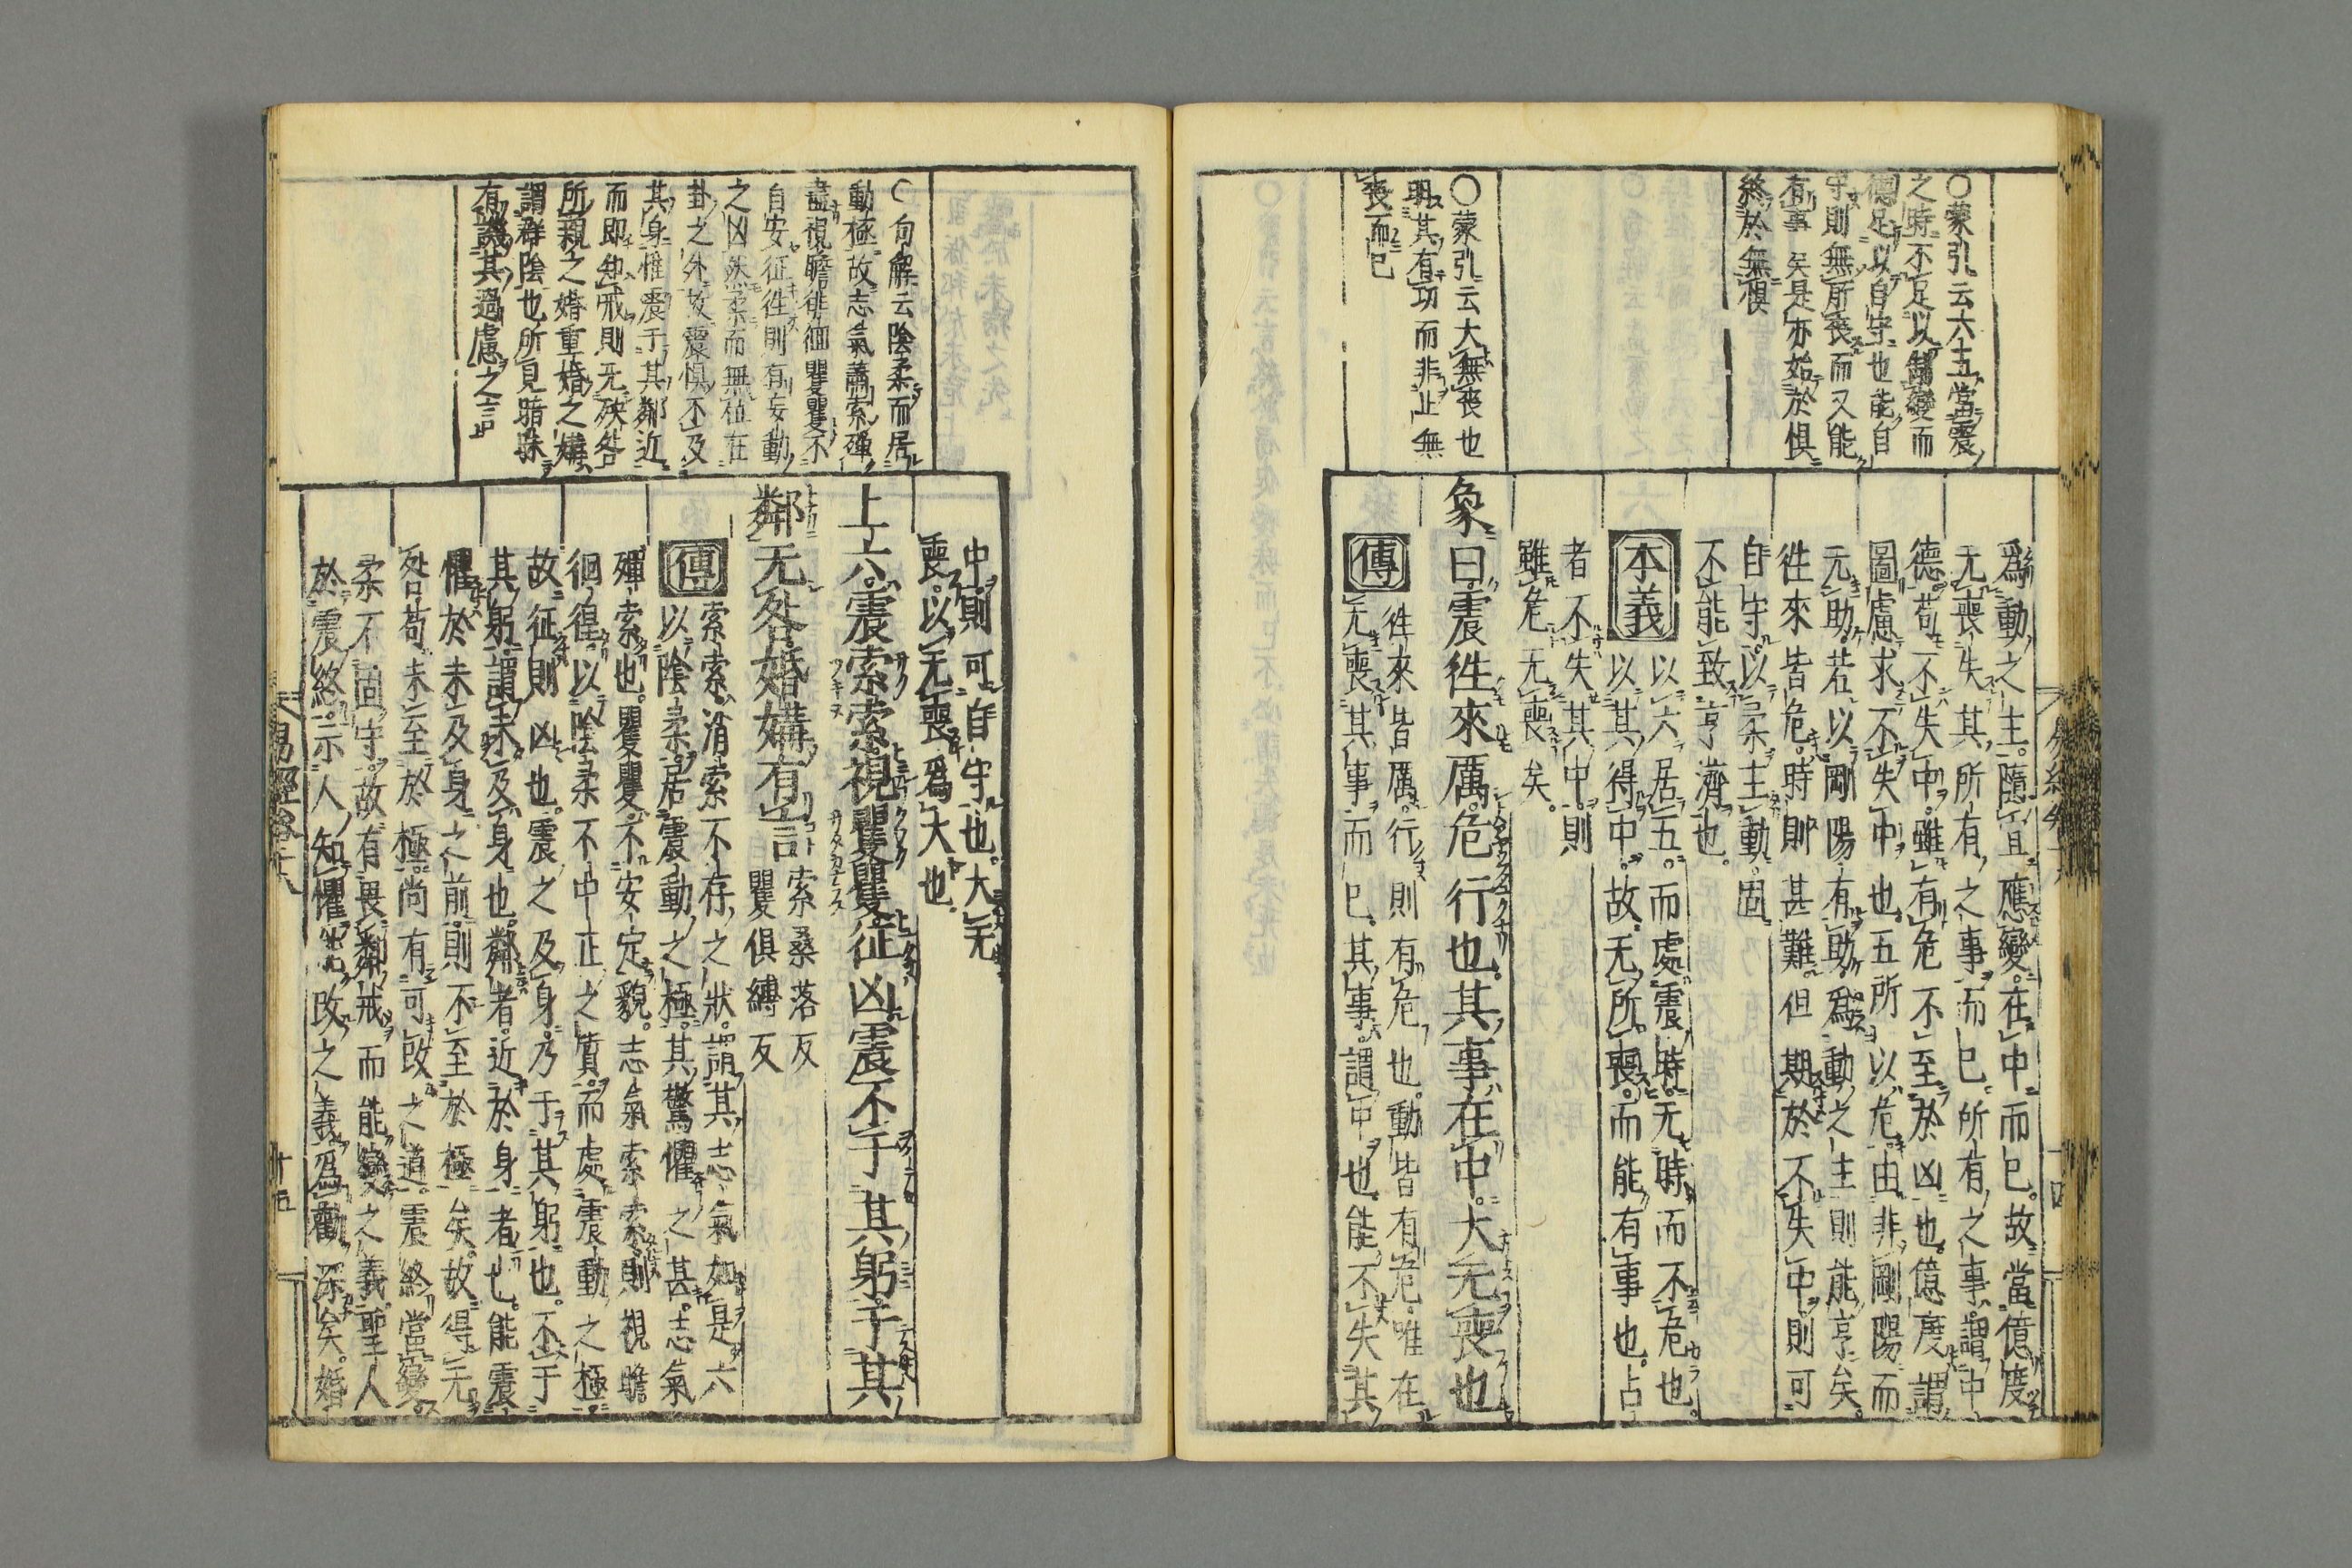 ○蒙引云六五當震
之時不足以制變而
德足以自守也能自
守則無所喪而又能
有事矣是亦始於懼
終於無懼
○蒙引云大無喪也
明其有功而非止無
喪而已
爲動之主隨宜應變在中而已故當億度
无喪失其所有之事而已所有之事謂中
德苟不失中雖有危不至於凶也億度謂
圖慮求不失中也五所以危由非剛陽而
无助若以剛陽有助爲動之主則能亨矣
徃來皆危時則甚難但期於不失中則可
自守以柔主動固
不能致亨濟也
本義
以六居五而處震時无時而不危也
以其得中故无所喪而能有事也占
者不失其中則
雖危无喪矣
象曰震徃來厲危行也其事在中大无喪也
傳
徃來皆厲行則有危也動皆有危唯在
无喪其事而已其事謂中也能不失其
十四
○句解云陰柔而居
動極故志氣蕭索殫
盡視瞻徘徊瞿瞿不
自安征徃則有妄動
之凶然柔而無位在
卦之外故震懼不及
其身惟震于其鄰近
而即知戒則无殃咎
所親之婚重婚之媾
謂群陰也所見暗昧
有譏其過慮之言
中則可自守也大无
喪以无喪爲大也
上六震索索視矍矍征凶震不于其躬于其
鄰无咎婚媾有言
索桑落反
矍俱縛反
傳
索索消索不存之狀謂其志氣如是六
以陰柔居震動之極其驚懼之甚志氣
殫索也矍矍不安定貌志氣索索則視瞻
徊徨以陰柔不中正之質而處震動之極
故征則凶也震之及身乃于其躬也不于
其躬謂未及身也鄰者近於身者也能震
懼於未及身之前則不至於極矣故得无
咎苟未至於極尚有可改之道震終當變
柔不固守故有畏鄰戒而能變之義聖人
於震終示人知懼能改之義爲勸深矣婚
易經
十五